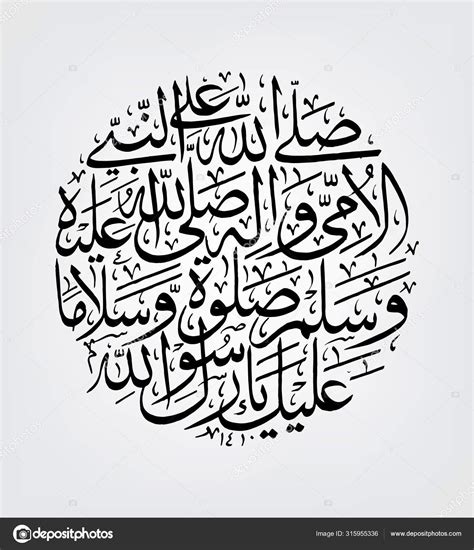 صلى الله على النبي
الأمي وآله صلى الله عليه
وسلم صلوة وسلاما
عليك يا رسول الله
١٤١٠
depositphotos
Image ID: 315955336
www.depositphotos.com